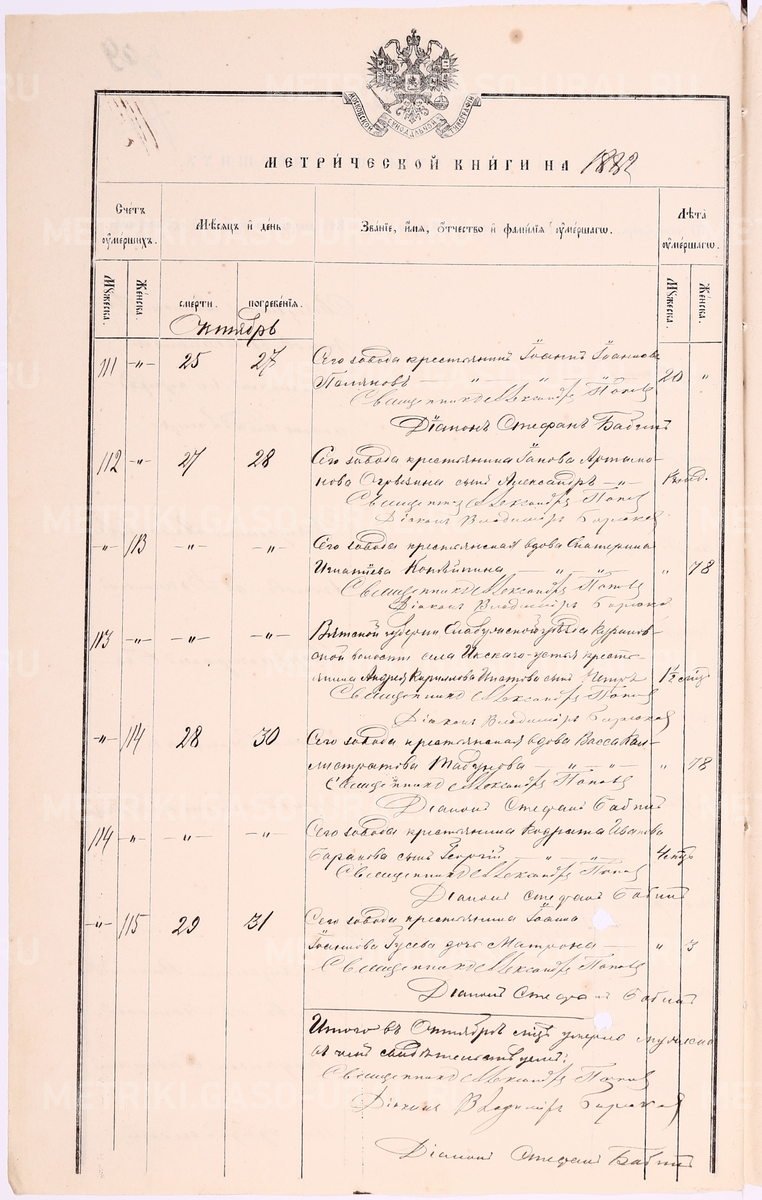 МОСКОВСКОЙ СУНОДАЛЬНОЙ ТИПОГРАФІИ
МЕТРИ́ЧЕСКОЙ КНИ́ГИ НА 1882
Счетъ ѹмершихъ.
Мѣсяцъ и день
Званіе, имя, отчество и фамилія ѹмершаго.
Лѣта ѹмершаго.
Мѹжеска.
Женска.
смерти.
погребенія.
Мѹжеска.
Женска.
Октябрь
111 -"- 25 27 Сего завода крестьянинъ Іоаннъ Іоанновъ
Поляковъ — " — " — " — 20 "
Священникъ Александръ Поповъ
Діаконъ Стефанъ Бабинъ
112 -"- 27 28 Сего завода крестьянина Іакова Артамо-
нова сынъ Александръ -"-
Священникъ Александръ Поповъ
Діаконъ Владиміръ
-"- 113 -"- -"- Сего завода крестьянская вдова Екатерина
Игнатіева — " — " — " 78
Священникъ Александръ Поповъ
Діаконъ Владиміръ
113 -"- -"- -"- Вятской губерніи Елабужской уѣзда
волости села Икскаго-устья кресть-
янина Андрея Кириллова сынъ Петръ 1½ мѣс.
Священникъ Александръ Поповъ
Діаконъ Владиміръ
-"- 114 28 30 Сего завода крестьянская вдова Васса Кал-
листратова Табунова — " — " — " 78
Священникъ Александръ Поповъ
Діаконъ Стефанъ Бабинъ
114 -"- -"- -"- Сего завода крестьянина Кодрата Иванова
Баранова сынъ Георгій — " — " —
Священникъ Александръ Поповъ
Діаконъ Стефанъ Бабинъ
-"- 115 29 31 Сего завода крестьянина Іоанна
Іоаннова Гусева дочь Матрона — " 3
Священникъ Александръ Поповъ
Діаконъ Стефанъ Бабинъ
Итого въ Октябрѣ мѣс. умерло мужеска
Священникъ Александръ Поповъ
Діаконъ Владиміръ
Діаконъ Стефанъ Бабинъ
METRIKI.GASO-URAL.RU